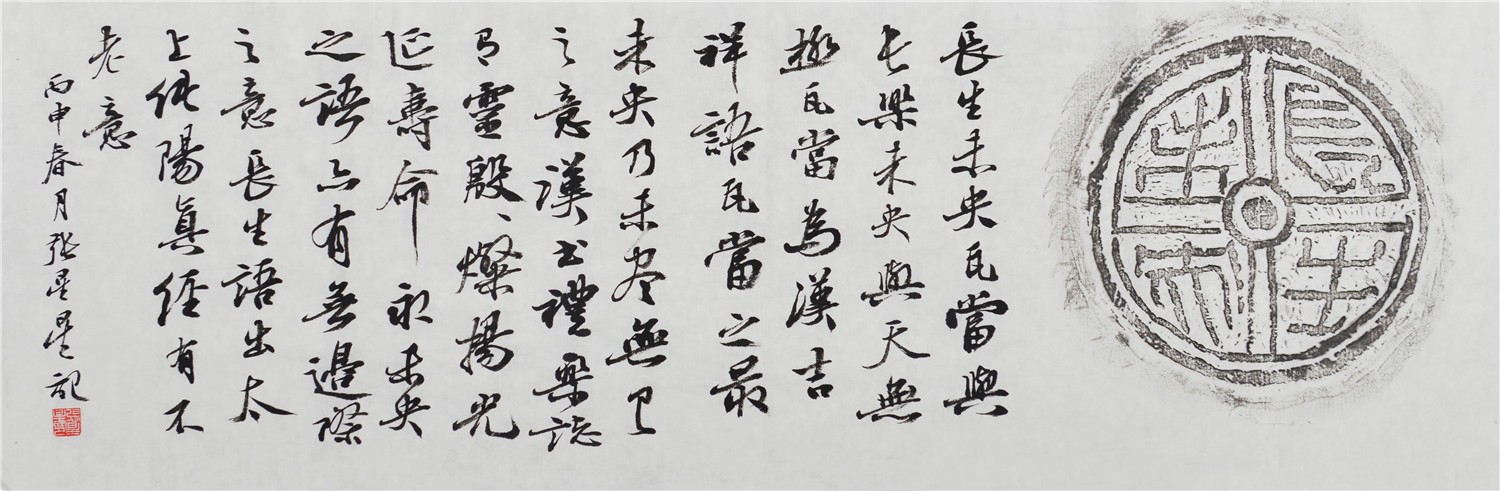 長生未央
長生未央瓦當與
長樂未央與天無
極瓦當為漢吉
祥語瓦當之最
未央乃未尽無已
之意漢書禮樂誌
有靈殷〻燦揚光
延壽命永未央
之語亦有無邊際
之意長生語出太
上純陽真經有不
老意
丙申春月張星星記